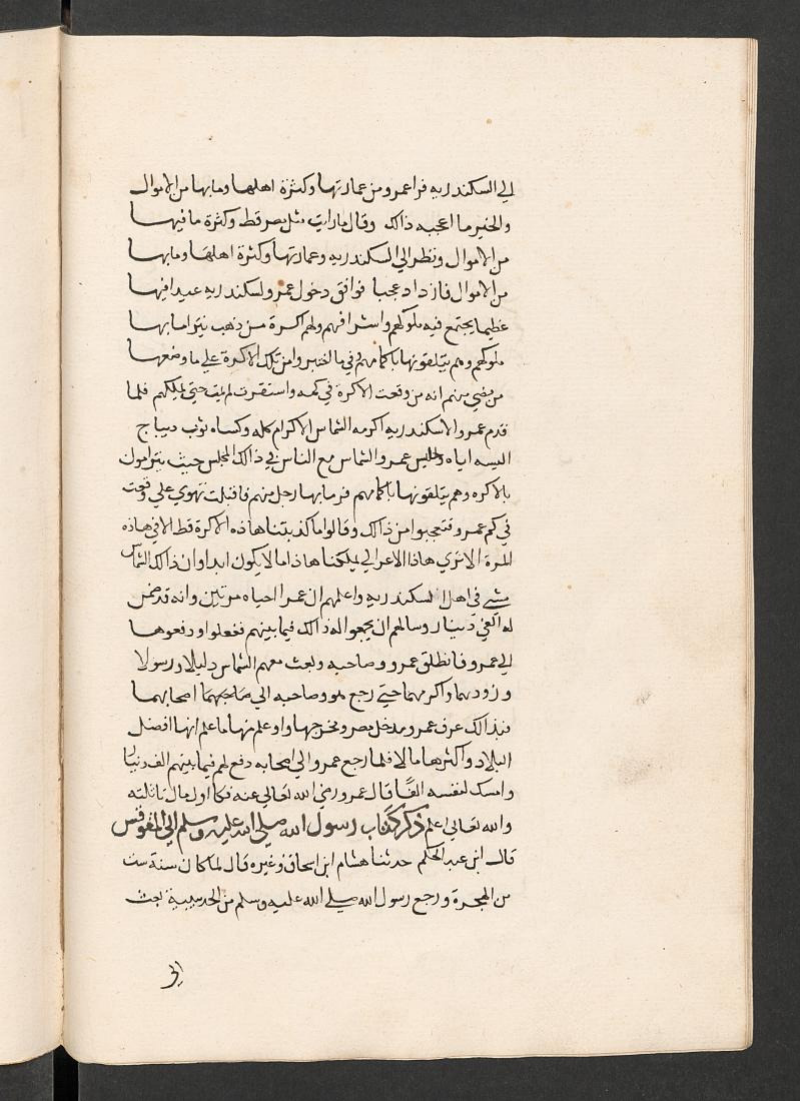 الي السكندريه فرا عمرو من عمارتها وكثرة اهلها وما بها من الاموال
والخير ما اعجبه ذالك وقال ما رايت مثل مصر قط وكثرة ما فيها
من الاموال ونظر الي السكندريه وعمارتها وكثرة اهلها وما بها
من الاموال فازداد عجبا فوافق دخول عمرو لسكندريه عيدا فيها
عظيما يجتمع فيه ملوكهم واشرافهم ولهم اكرة من ذهب يتراما بها
ملوكهم وهم يتلقونها باكمامهم وفيما اختبروا من تلك الاكرة علي ما وضعها
من مضي منهم انه من وقعت الاكرة في كمه واستقرت لم يمت حتي يملكهم فلما
قدم عمرو الاسكندريه اكرمه الشماس الاكرام كله وكساه ثوب ديباج
البسه اياه وجلس عمرو والشماس مع الناس في ذالك المجلس حيث يترامون
بالاكره وهم يتلقونها باكمامهم فرما بها رجل منهم فاقبلت تهوي علي وقعت
في كم عمرو فتعجبوا من ذالك وقالوا ما كذبتنا هاذه الاكرة قط الا في هاذه
المرة الا تري هاذا الاعرابي يملكنا هاذا ما لا يكون ابدا وان ذالك الشماس
مشي في اهل السكندريه واعلمهم ان عمرا احياه مرتين وانه قد ضمن
له الفي دينار وسالهم ان يجمعوا له ذالك فيما بينهم ففعلوا ودفعوها
الي عمرو فانطلق عمرو وصاحبه وبعث معهم الشماس دليلا ورسولا
وزودهما واكرمهما حتي رجع هو وصاحبه الي صاحبهما اصحابهما
فبذالك عرف عمرو مدخل مصر ومخرجها واوعلم منها ما علم انها افضل
البلاد واكثرها مالا فلما رجع عمرو الي اصحابه دفع لهم فيما بينهم الف دينار
وامسك لنفسه الفا قال عمرو رضي الله تعالي عنه فكا اول مال تاثلته
والله تعالي اعلم ذكر كتاب رسول الله صلي الله عليه وسلم الي المقوقس
قال ابن عبد الحكم حدثنا هشام ابن اسحاق وغيره قال لما كان سنة ست
من الهجرة ورجع رسول الله صلي الله عليه وسلم من الحديبية بعث
الي